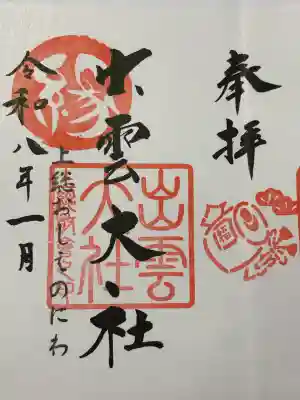 奉拝
出雲大社
上総かしものにわ
令和八年一月
縁
出雲大社
福